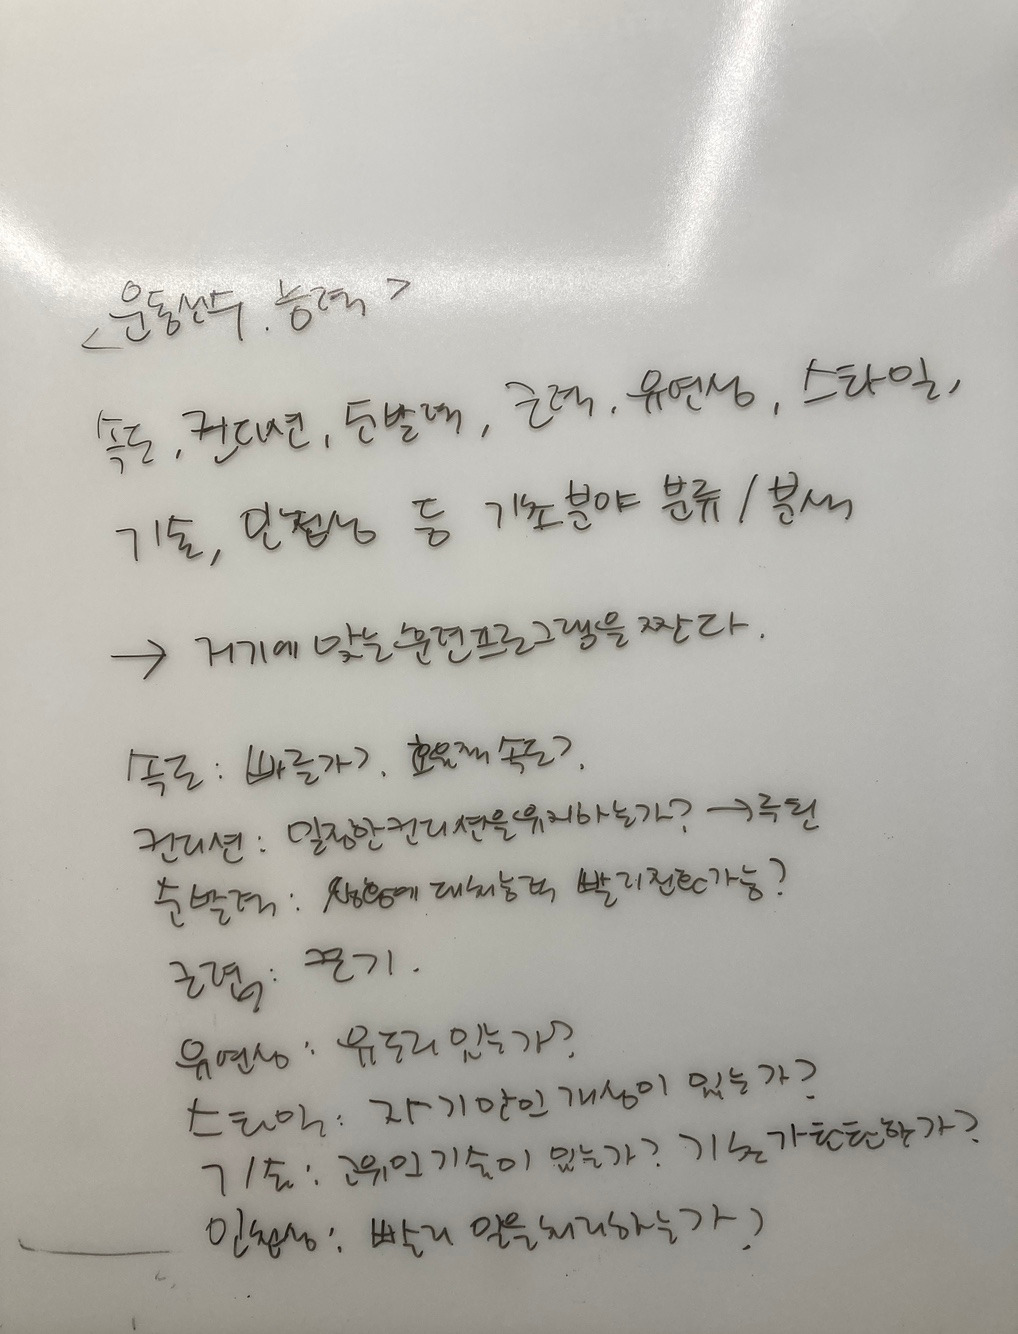 <운동선수. 능력>
속도, 컨디션, 순발력, 근력, 유연성, 스타일,
기술, 민첩성 등 기초분야 분류/분석
→ 거기에 맞는 훈련프로그램을 짠다.
속도: 빠른가?. 속도?.
컨디션: 일정한 컨디션을 유지하는가? → 루틴
순발력: 상황에 대처능력 빨리전환가능?
근력: 끈기.
유연성: 유도리 있는가?
스타일: 자기만의 개성이 있는가?
기술: 고위의 기술이 있는가? 기초가 탄탄한가?
민첩성: 빨리 일을 처리하는가?